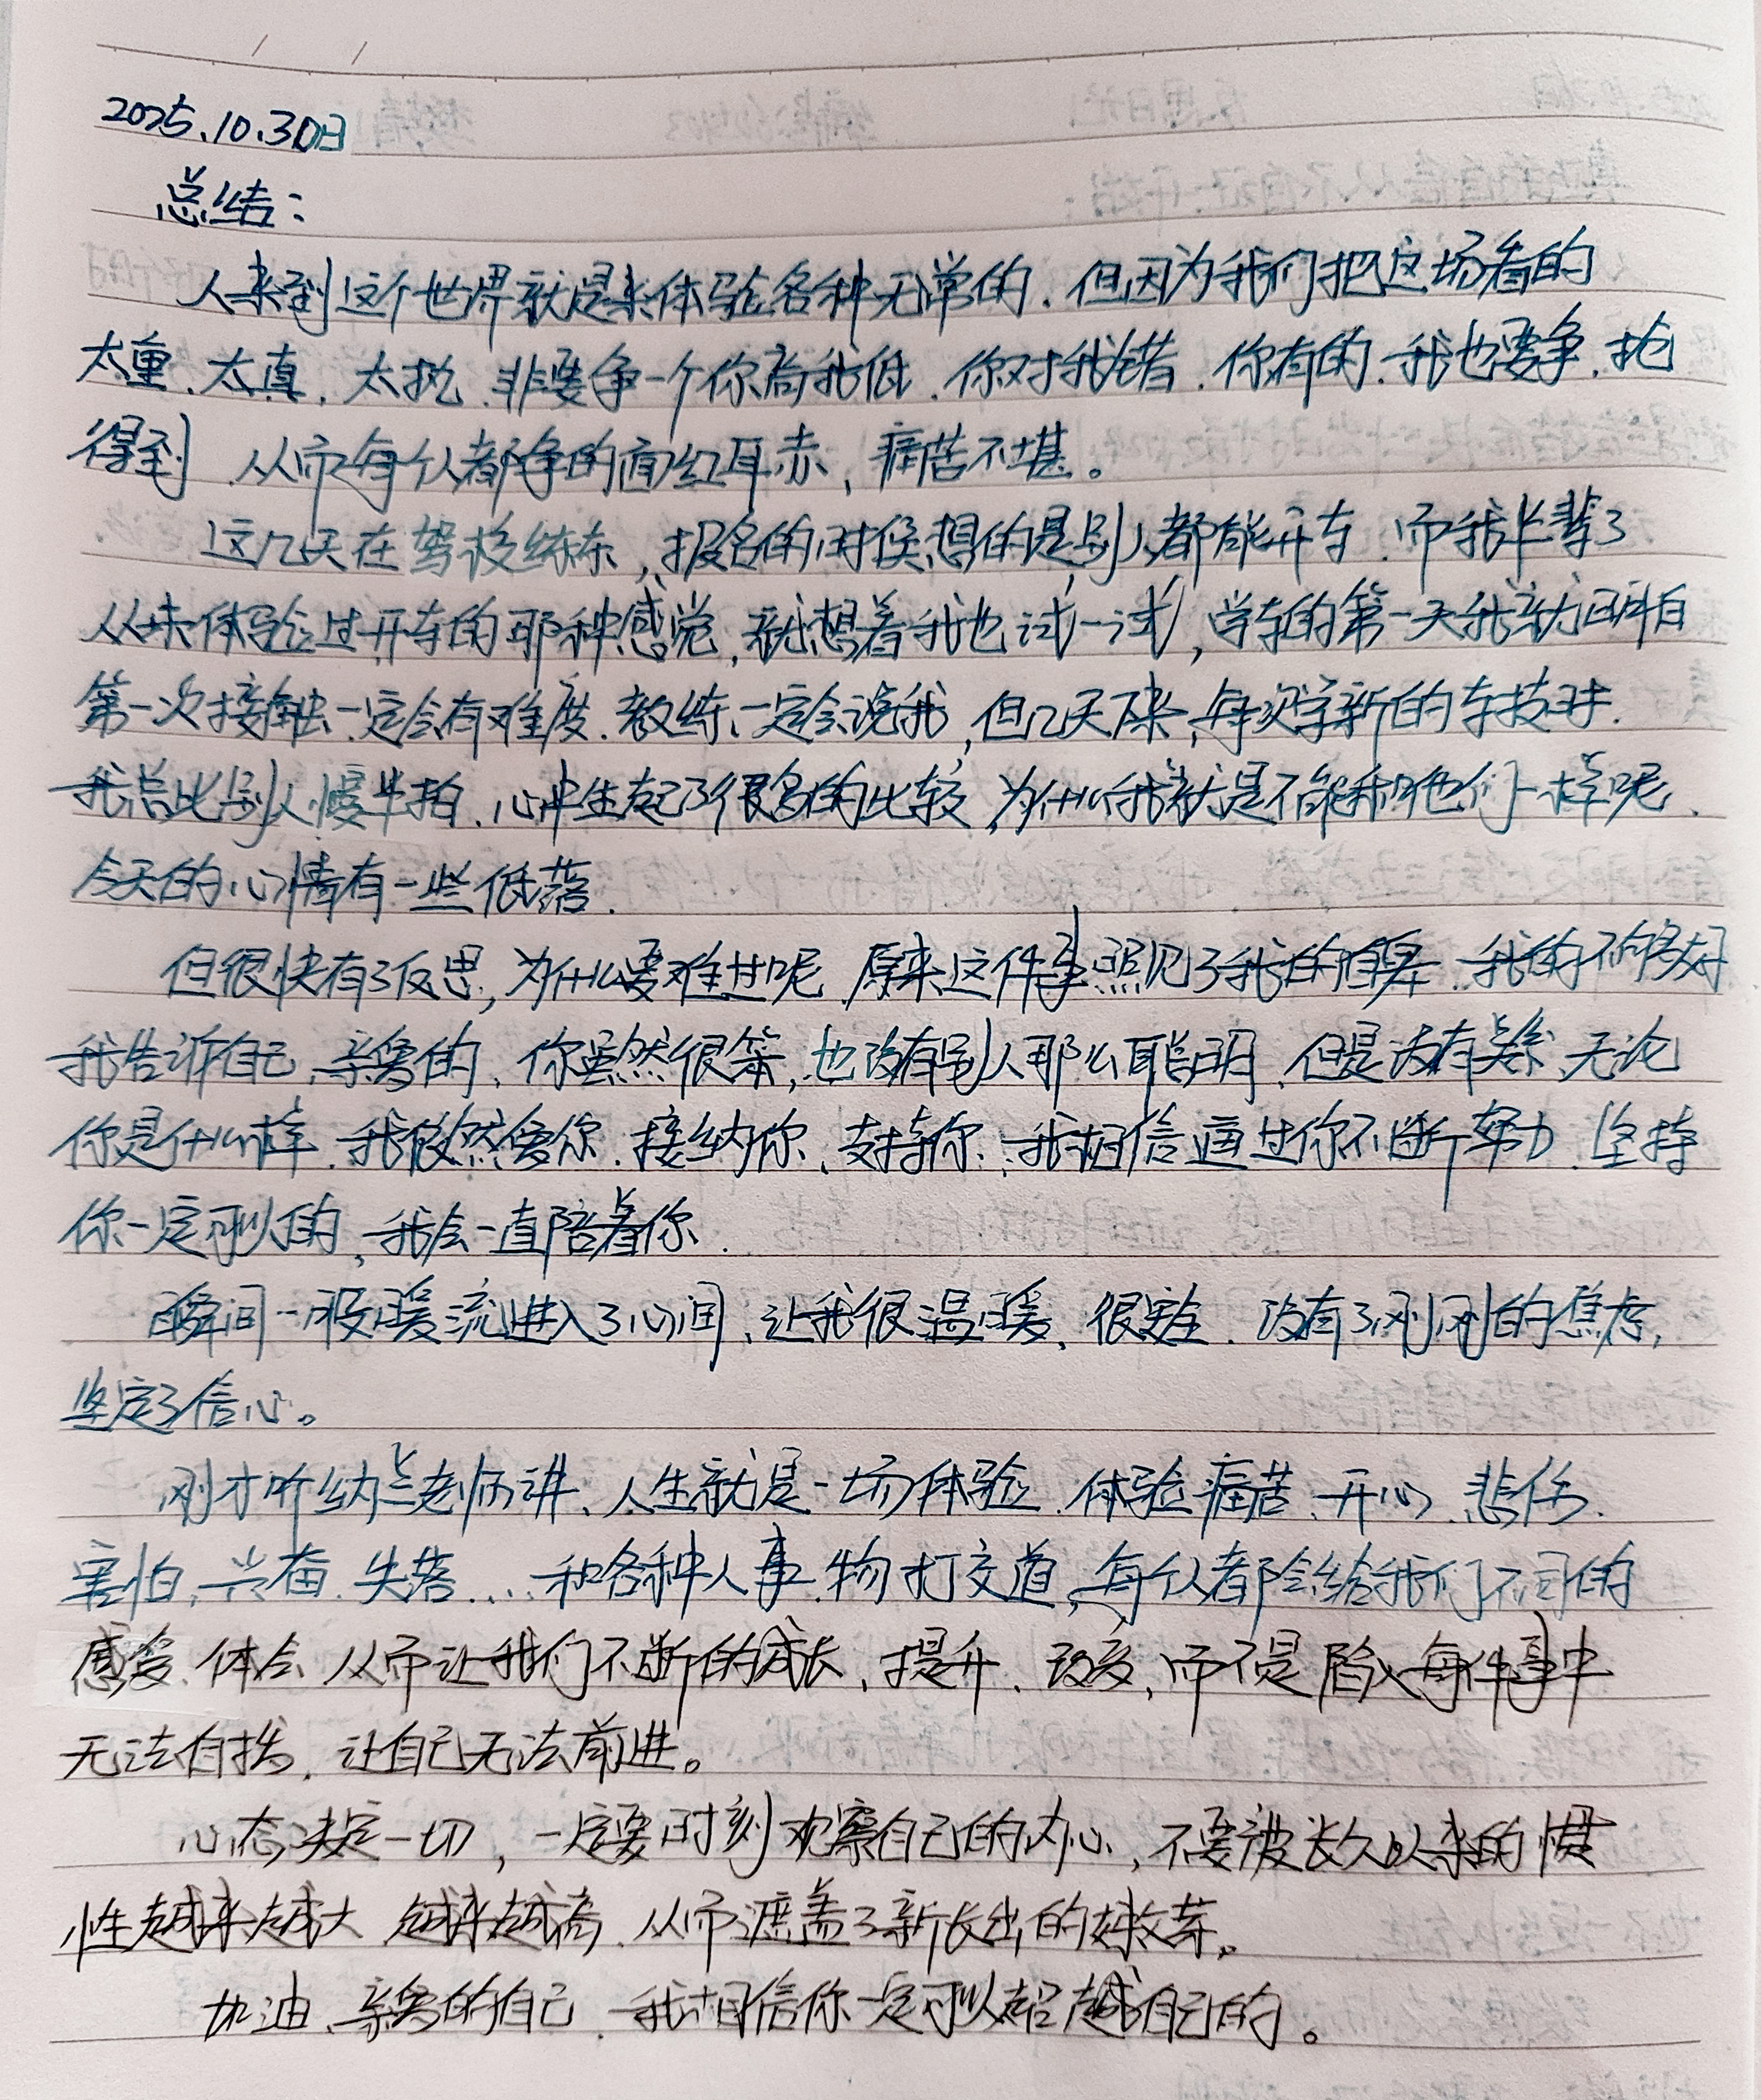 2025.10.30日
总结：
人来到这个世界就是来体验各种无常的.但因为我们把这场看的
太重.太真.太执.非要争一个你高我低.你对我错.你有的.我也要争.抢
得到.从而每个人都争的面红耳赤,痛苦不堪。
这几天在驾校练车,报名的时候想的是别人都能开车.而我半辈了
从未体验过开车的那种感觉,就想着我也试一试,学车的第一天我就明白
第一次接触.一定会有难度.教练一定会说我,但几天下来,每次学新的车技时.
我总比别人慢半拍.心中生起了很多的比较,为什么我就是不能和他们一样呢.
今天的心情有一些低落.
但很快有了反思,为什么要难过呢.原来这件事照见了我的自卑.我的不够好
我告诉自己,亲爱的,你虽然很笨,也没有别人那么聪明.但是没有关系.无论
你是什么样.我依然爱你.接纳你.支持你.我相信通过你不断努力.坚持
你一定可以的,我会一直陪着你.
瞬间一股暖流进入了心间,让我很温暖.很安全.没有了刚刚的焦虑,
坚定了信心。
刚才听纳兰老师讲.人生就是一场体验.体验痛苦.开心.悲伤.
害怕.兴奋.失落...和各种人事.物打交道,每个人都会给我们不同的
感受.体会.从而让我们不断的成长,提升.改变,而不是陷入每件事中
无法自拔.让自己无法前进。
心态决定一切,一定要时刻观察自己的内心,不要被长久以来的惯
性越来越大.越来越高.从而遮盖了新长出的嫩芽。
加油.亲爱的自己.我相信你一定可以超越自己的。